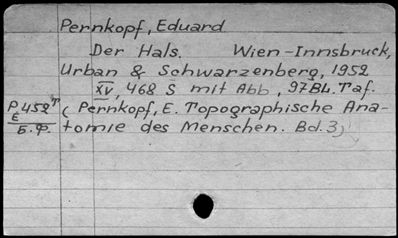 Pernkopf, Eduard
Der Hals. Wien-Innsbruck,
Urban & Schwarzenberg, 1952
XV, 468 S mit Abb, 97 BL. Taf.
P 452 T (Pernkopf, E. Topographische Ana-
E
Б.Ф. tomie des Menschen. Bd. 3)